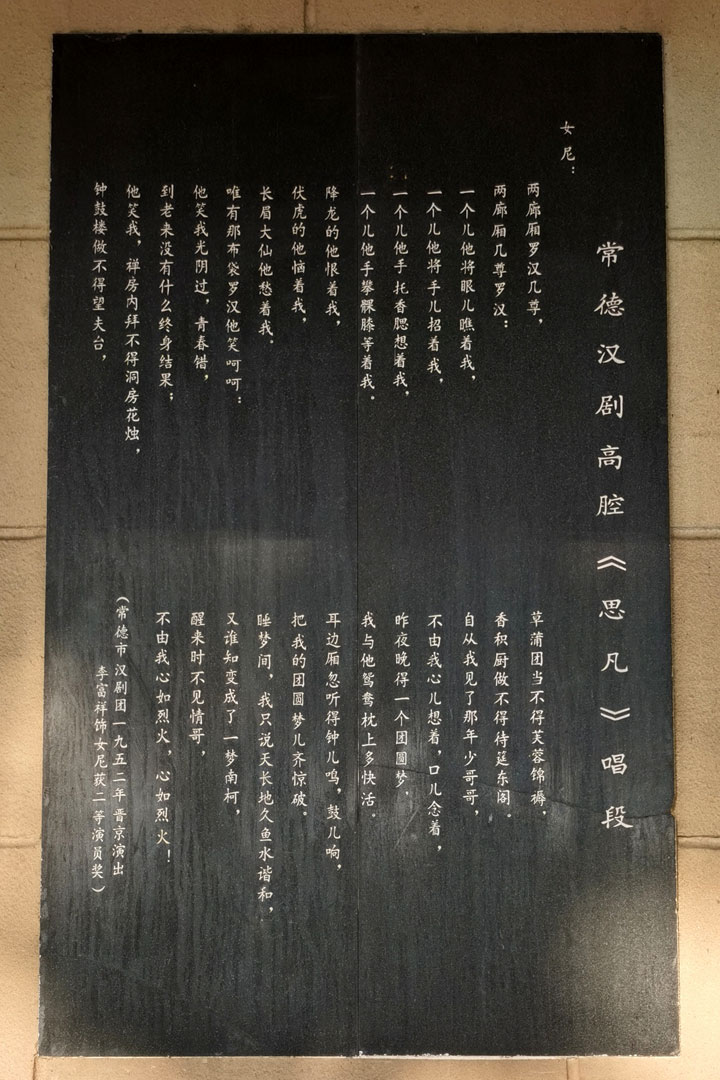 常德汉剧高腔《思凡》唱段
女尼：
两廊厢罗汉几尊，
两廊厢几尊罗汉：
一个儿他将眼儿瞧着我，
一个儿他将手儿招着我，
一个儿他手托香腮想着我，
一个儿他手攀骒膝等着我。
降龙的他恨着我，
伏虎的他恼着我，
长眉大仙他愁着我。
唯有那布袋罗汉他笑呵呵：
他笑我光阴过，青春错，
到老来没有什么终身结果；
他笑我，禅房内拜不得洞房花烛，
钟鼓楼做不得望夫台，
草蒲团当不得芙蓉锦褥，
香积厨做不得待筵东阁。
自从我见了那年少哥哥，
不由我心儿想着，口儿念着，
昨夜晚得一个团圆梦，
我与他鸳鸯枕上多快活。
耳边厢忽听得钟儿鸣，鼓儿响，
把我的团圆梦儿齐惊破。
睡梦间，我只说天长地久鱼水谐和，
又谁知变成了一梦南柯，
醒来时不见情哥，
不由我心如烈火，心如烈火！
（常德市汉剧团一九五二年晋京演出
李富祥饰女尼获二等演员奖）